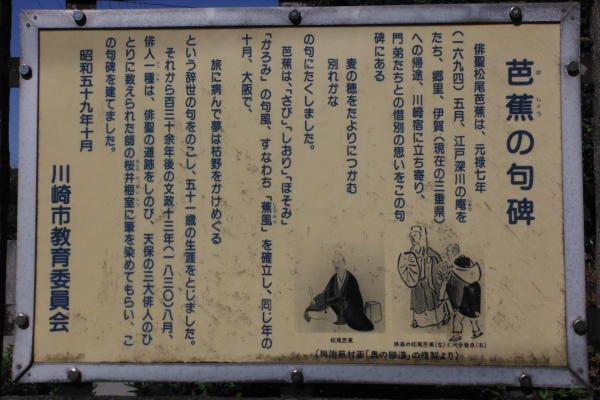 芭蕉の句碑
ばしょう
俳聖松尾芭蕉は、元禄七年
(一六九四)五月、江戸深川の庵を
たち、郷里、伊賀(現在の三重県)
への帰途、川崎宿に立ち寄り、
門弟たちとの惜別の思いをこの句
碑にある
麦の穂をたよりにつかむ
別れかな
の句にたくしました。
芭蕉は、「さび」「しおり」「ほそみ」
「かろみ」の句風、すなわち「蕉風」を確立し、同じ年の
十月、大阪で、
旅に病んで夢は枯野をかけめぐる
という辞世の句をのこし、五十一歳の生涯をとじました。
それから百三十余年後の文政十三年(一八三〇)八月、
俳人一種は、俳聖の道跡をしのび、天保の三大俳人のひ
とりに数えられた師の桜井梅室に筆を染めてもらい、こ
の句碑を建てました。
昭和五十九年十月
川崎市教育委員会
松尾芭蕉
旅姿の松尾芭蕉(左)と河合曾良(右)
(与謝蕪村画「奥の細道」の複製より)